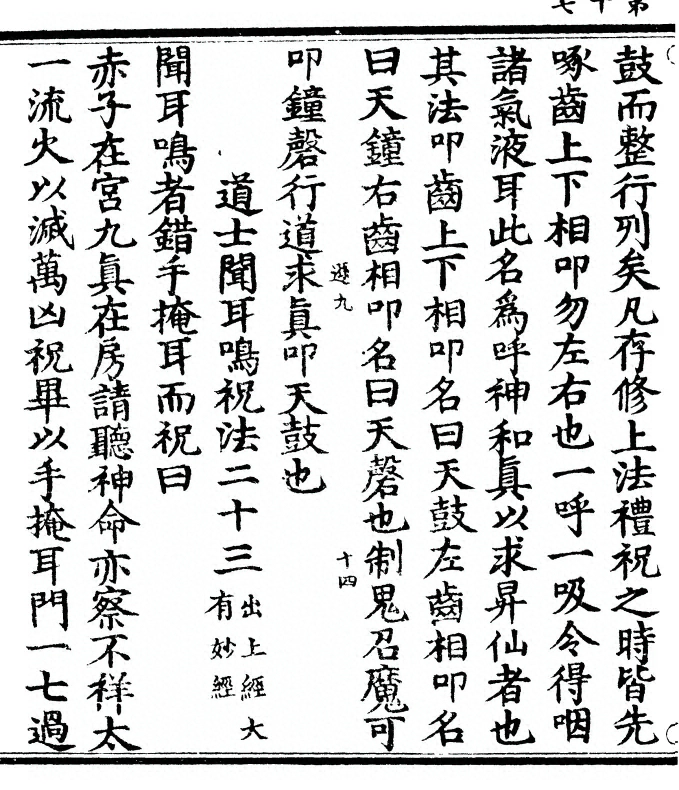 第十七
鼓而整行列矣凡存修上法禮祝之時皆先
啄齒上下相叩勿左右也一呼一吸令得咽
諸氣液耳此名爲呼神和眞以求昇仙者也
其法叩齒上下相叩名曰天鼓左齒相叩名
曰天鐘右齒相叩名曰天磬也制鬼召魔可
遜九
十四
叩鐘磬行道求眞叩天鼓也
道士聞耳鳴祝法二十三
出上經大
有妙經
聞耳鳴者錯手掩耳而祝曰
赤子在宮九眞在房請聽神命亦察不祥太
一流火以滅萬凶祝畢以手掩耳門一七過